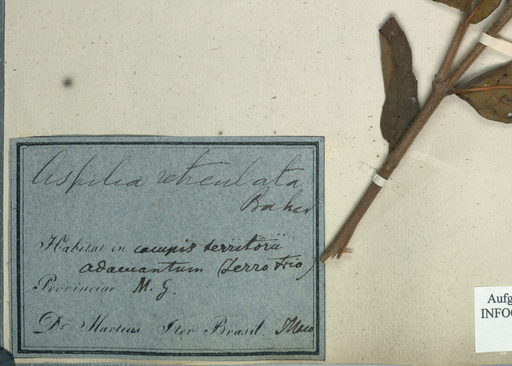 Aspilia reticulata
Baker
Habitat in campis territorii
adamantum (Serro frio)
Provinciae M. G.
Dr. Martius Iter Brasil.
Aufg
INFOC